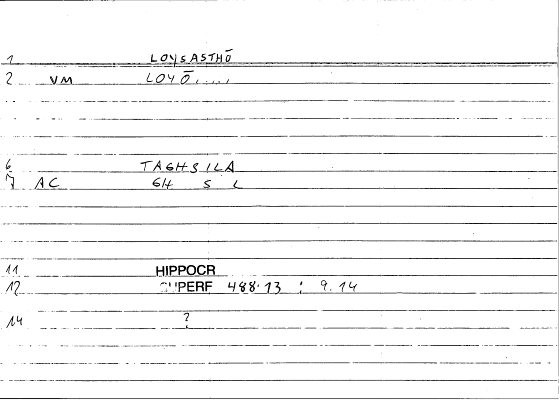 1 LOYSASTHŌ
2 VM LOYŌ.....
6 TAGHSILA
7 AC GH S L
11 HIPPOCR
12 SUPERF 488.13 : 9.14
14 ?